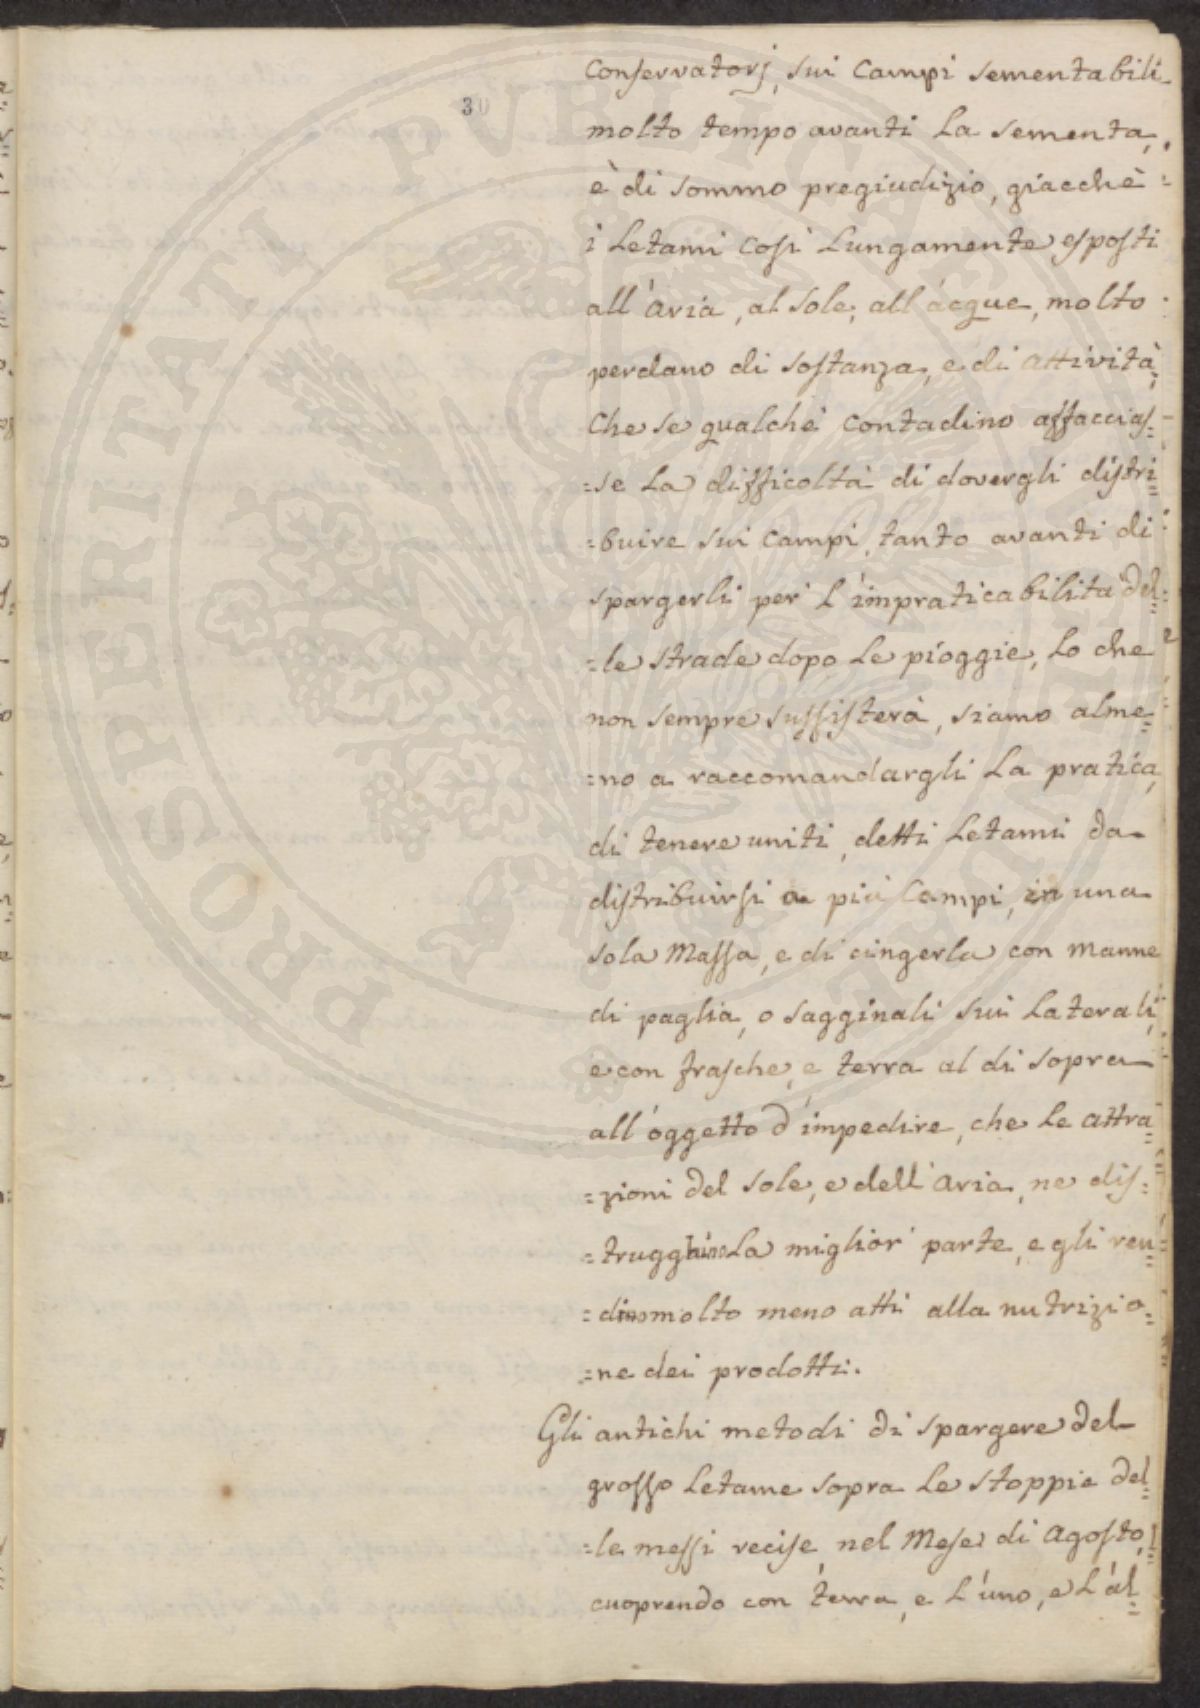 30
Conservatorj, sui Campi sementabili
molto tempo avanti la sementa,
è di sommo pregiudizio, giacchè
i Letami così Lungamente esposti
all'aria, al Sole, all'acque, molto
perdano di sostanza, e di attività,
Che se qualche Contadino affacciaſ=
=se La difficoltà di dovergli distri=
=buire sui Campi, tanto avanti di
spargerli per l'impraticabilità del=
=le strade dopo le pioggie, Lo che
non sempre sussisterà, siamo alme=
=no a raccomandargli La pratica,
di tenere uniti, detti Letami da
distribuirsi a più Campi, in una
sola Massa, e di cingerla con manne
di paglia, o Sagginali sui Laterali,
e con frasche, e terra al di sopra
all'oggetto d'impedire, che le attra=
=zioni del Sole, e dell'aria, ne dis=
=trugghino La miglior parte, e gli ren=
=dino molto meno atti alla nutrizio=
=ne dei prodotti.
Gli antichi metodi di spargere del
grosso Letame sopra le stoppie del=
=le messi recise, nel Mese di Agosto,
cuoprendo con terra, e l'uno, e l'al=
PROSPERITATI PUBLICAE